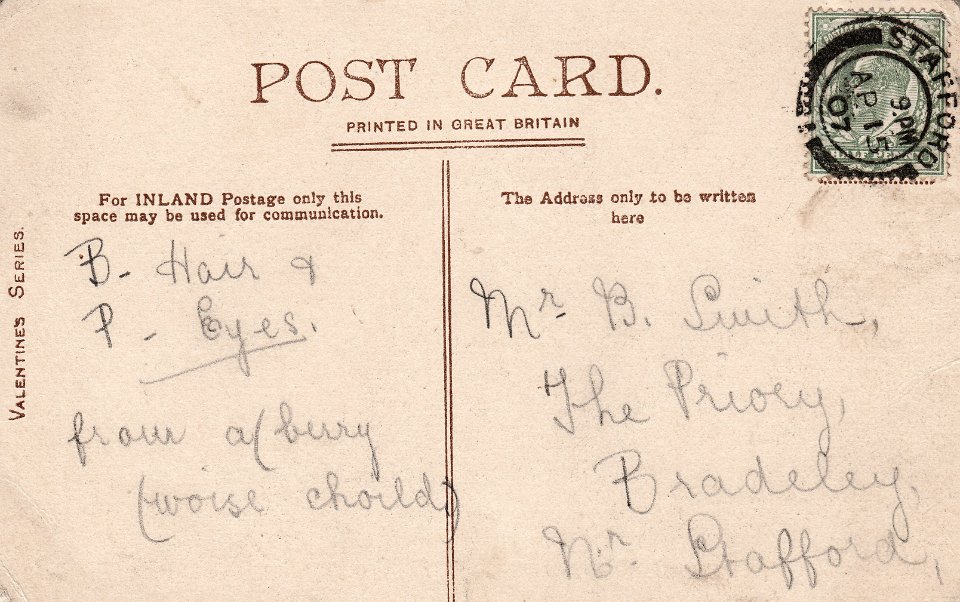 POST CARD.
PRINTED IN GREAT BRITAIN
STAFFORD
9.PM
AP 15
07
For INLAND Postage only this
space may be used for communication.
The Address only to be written
here
VALENTINE'S SERIES.
B- Hair &
P - Eyes.
from a
(woise choild)
Mr B. Smith,
The Priory,
Bradeley,
Nr. Stafford,